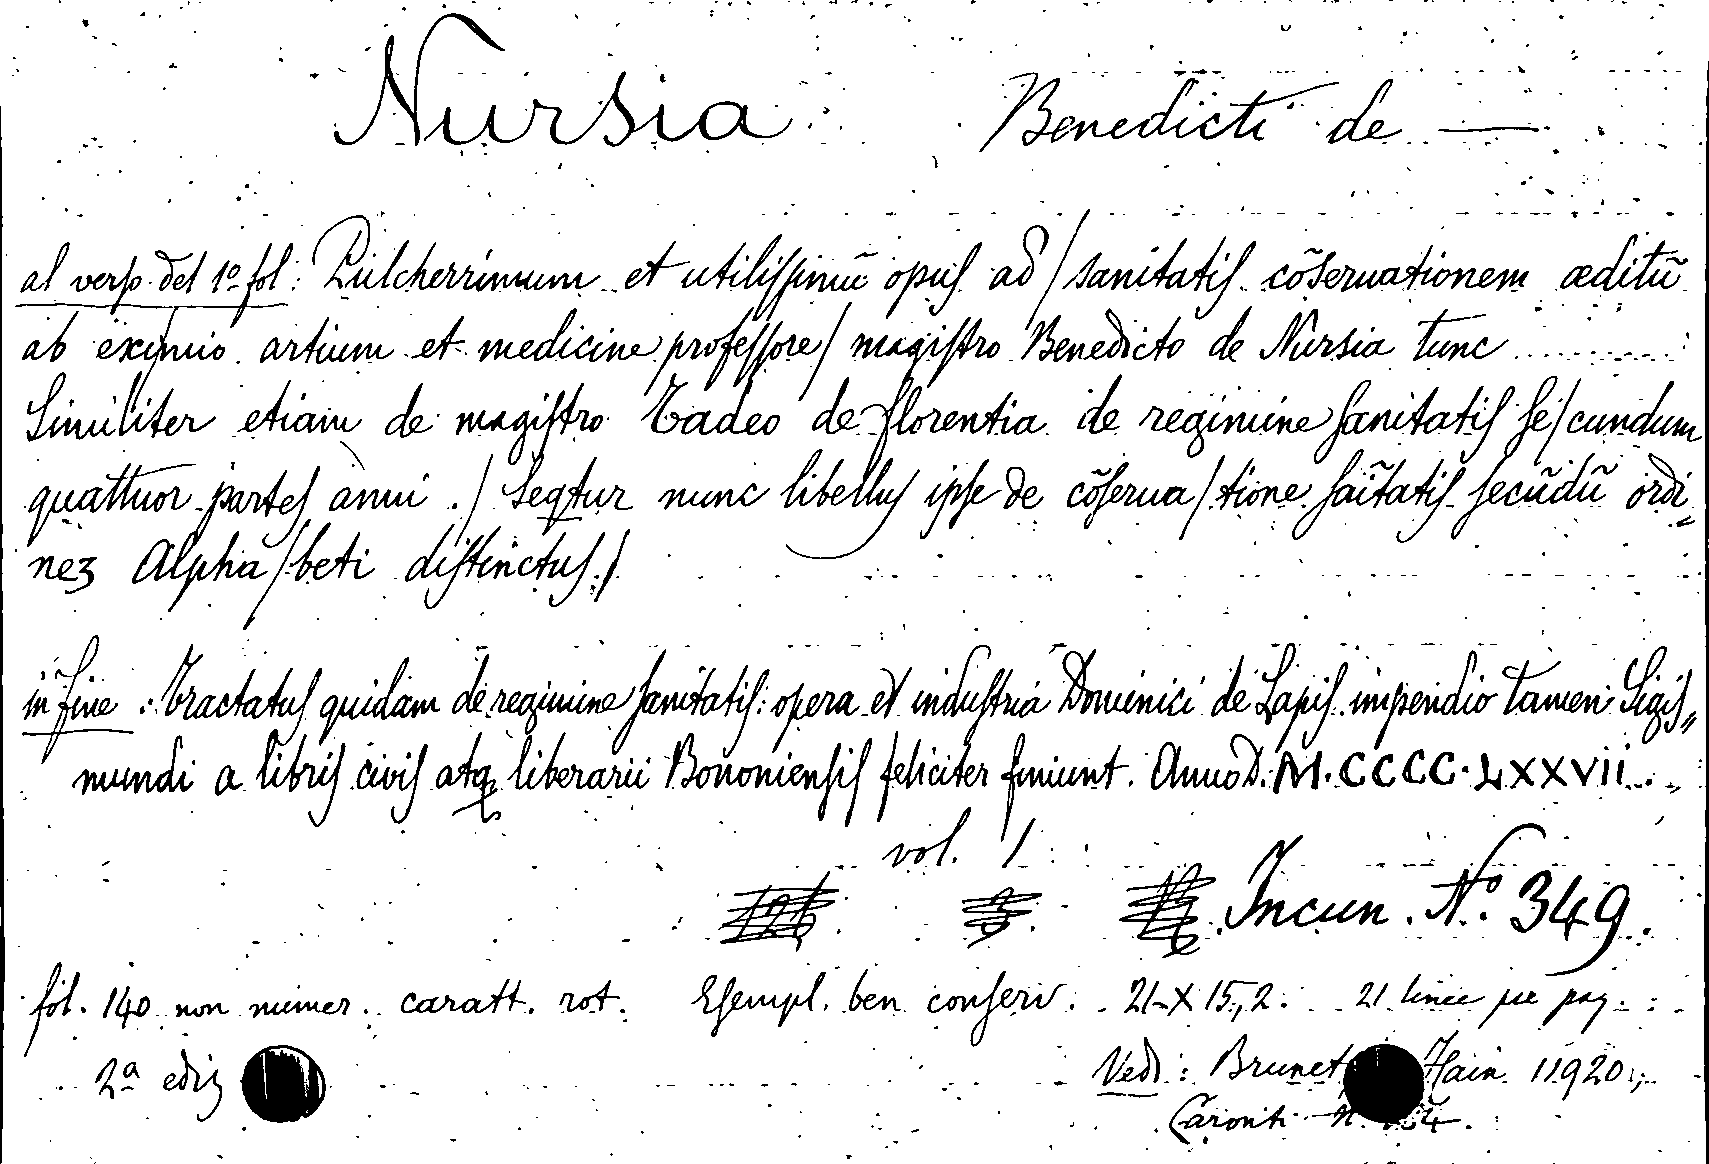 Nursia Benedicti de —
al verso del 1º fol: Pulcherrimum et utilissimū opus ad / sanitatis cōseruationem æditū
ab eximio artium et medicine professore / magistro Benedicto de Nursia tunc ..........
Similiter etiam de magistro Tadeo de florentia de regimine sanitatis se/cundum
quattuor partes anni . / Seqtur nunc libellus ipse de cōserua/tione sāitatis secūdū ordi„
nez Alpha/beti distinctus./
in fine : Tractatus quidam de regimine sanitatis: opera et industria Dominici de Lapis. impendio tamen Sigis„
mundi a libris civis atq liberarii Bononiensis feliciter finiunt. Anno D. M.CCCC.LXXVii.
vol. 1
Incun. Nº. 349.
fol. 140 non numer. caratt. rot. Esempl. ben conserv. 21 X 15,2. 21 linee per pag.
2ª ediz
Vedi: Brunet Hain 11920;
Caronti n.